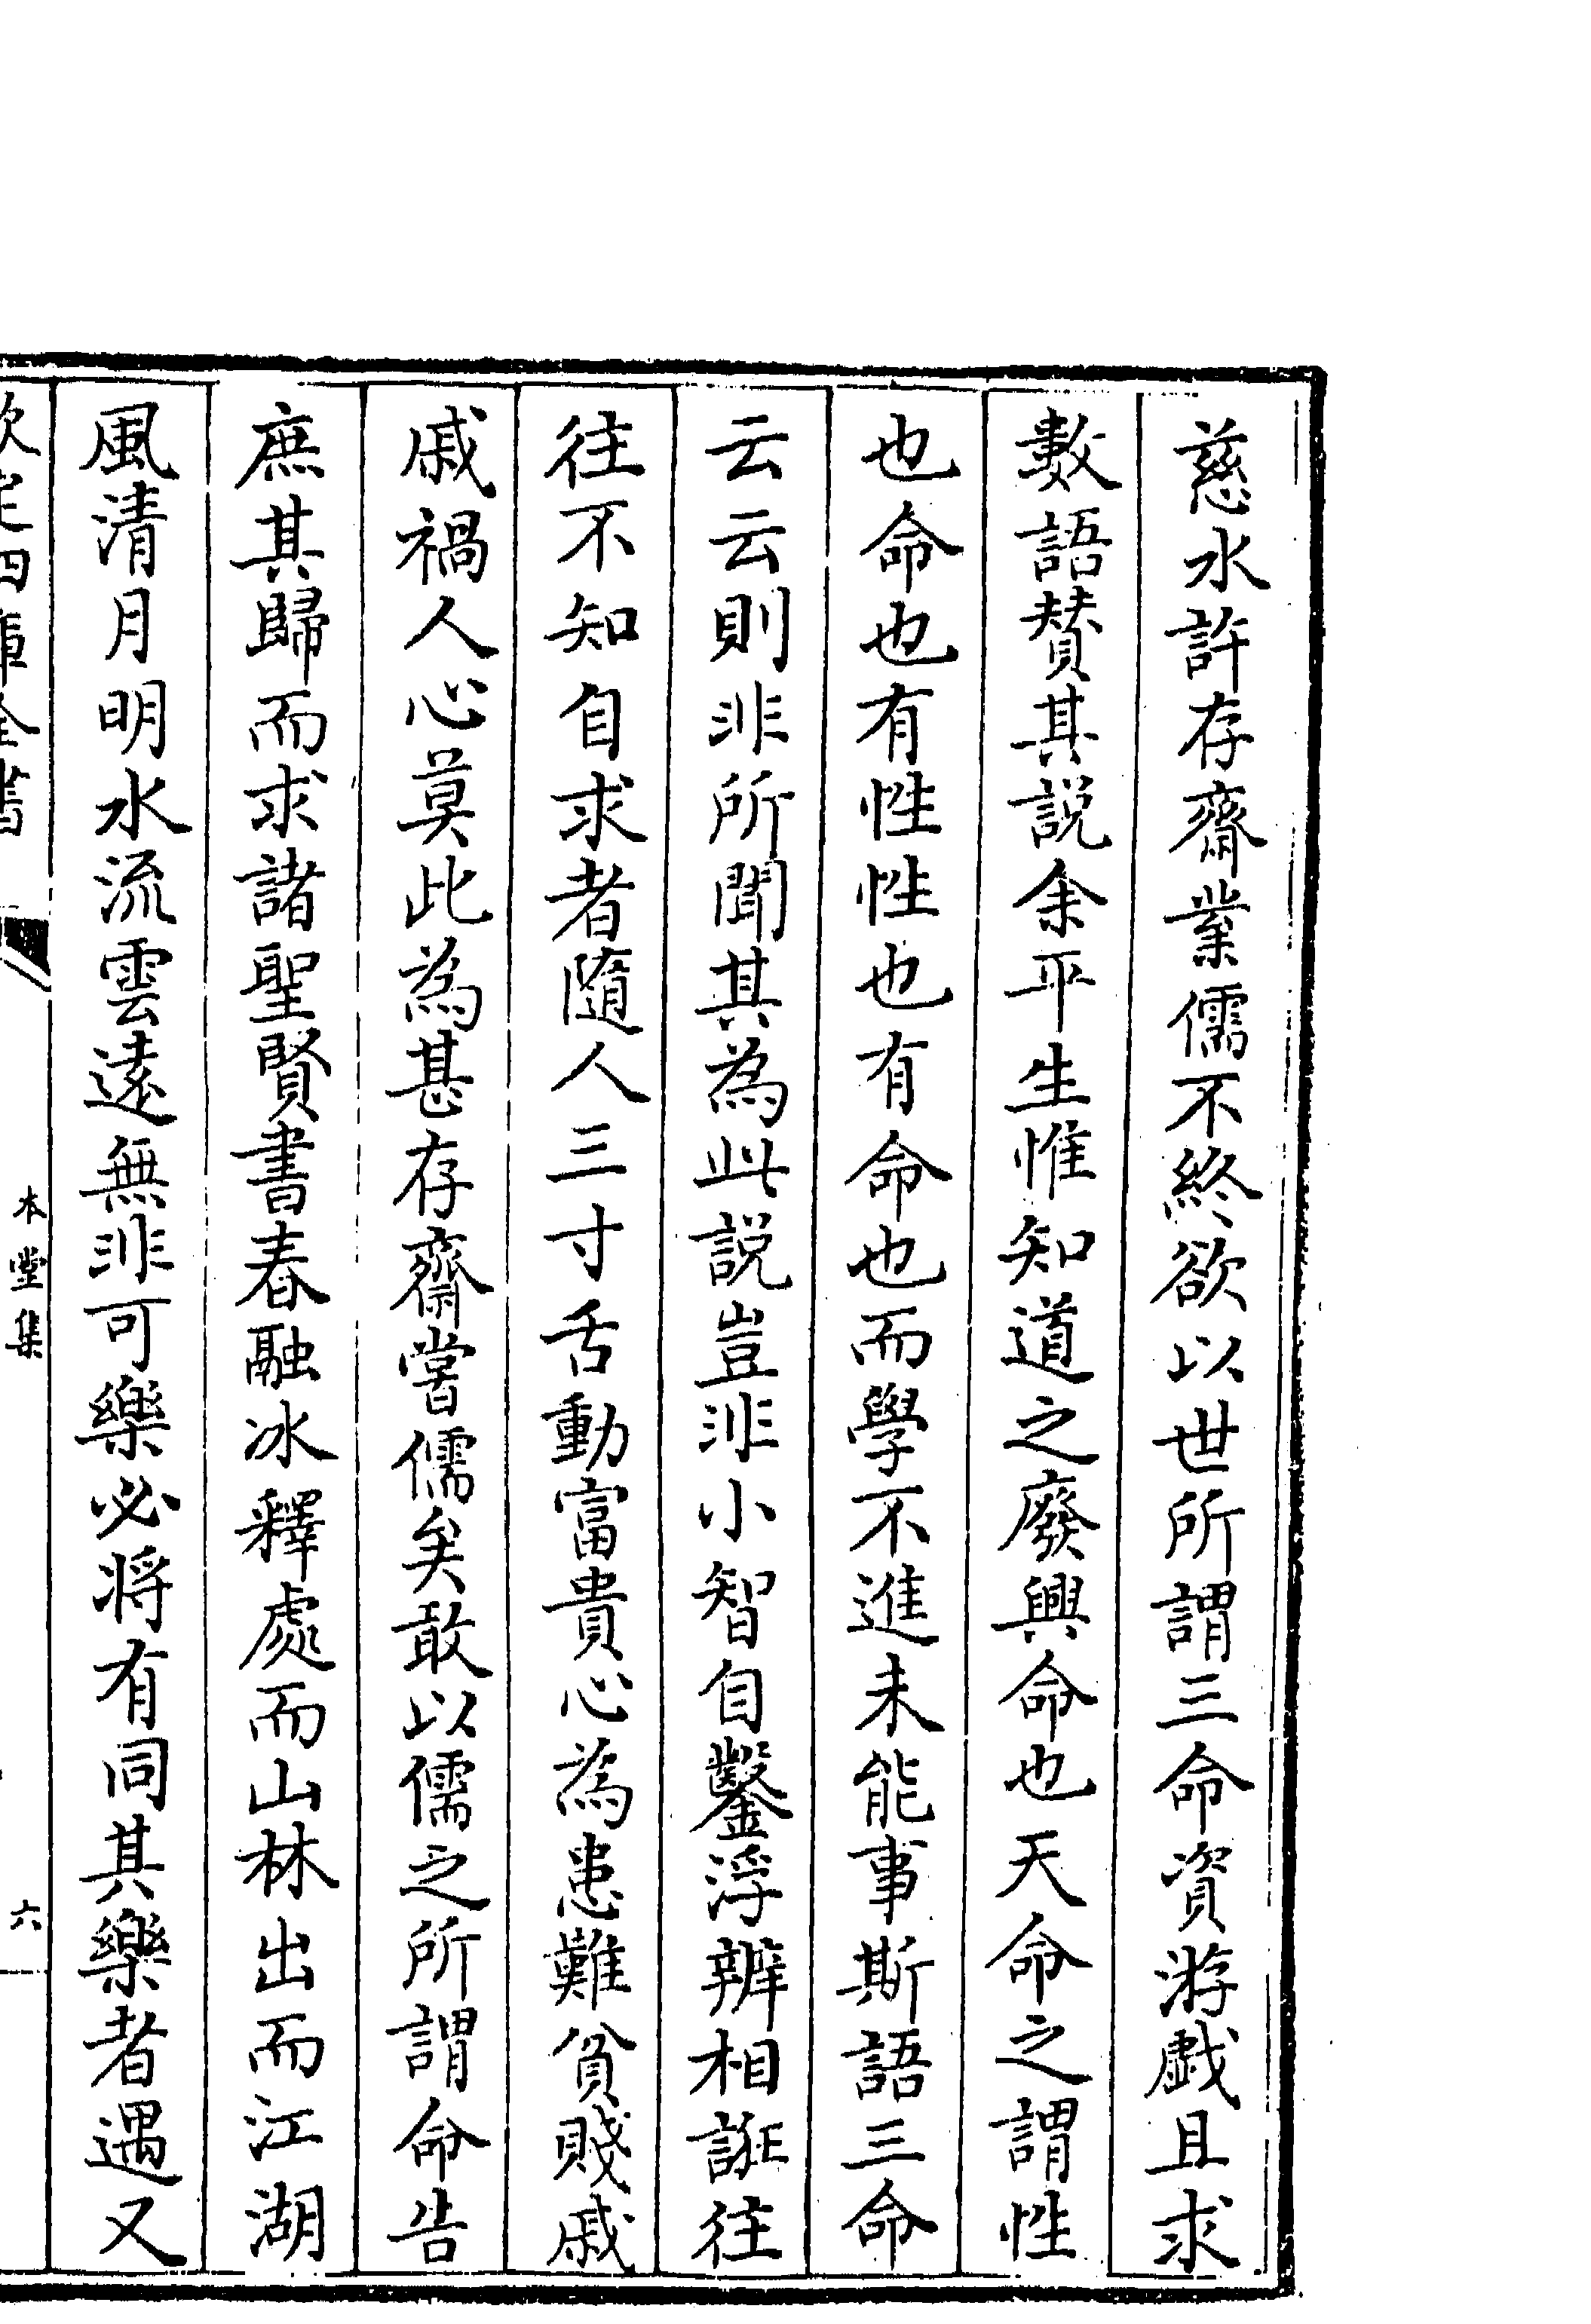 慈水許存齋業儒不終欲以世所謂三命資游戲且求
數語賛其說余平生惟知道之廢興命也天命之謂性
也命也有性性也有命也而學不進未能事斯語三命
云云則非所聞其為此說豈非小智自鑿浮辨相誑往
往不知自求者隨人三寸舌動富貴心為患難貧賤戚
戚禍人心莫此為甚存齋嘗儒矣敢以儒之所謂命告
庶其歸而求諸聖賢書春融冰釋處而山林出而江湖
風清月明水流雲逺無非可樂必將有同其樂者遇又
欽定四庫全書
本堂集
六